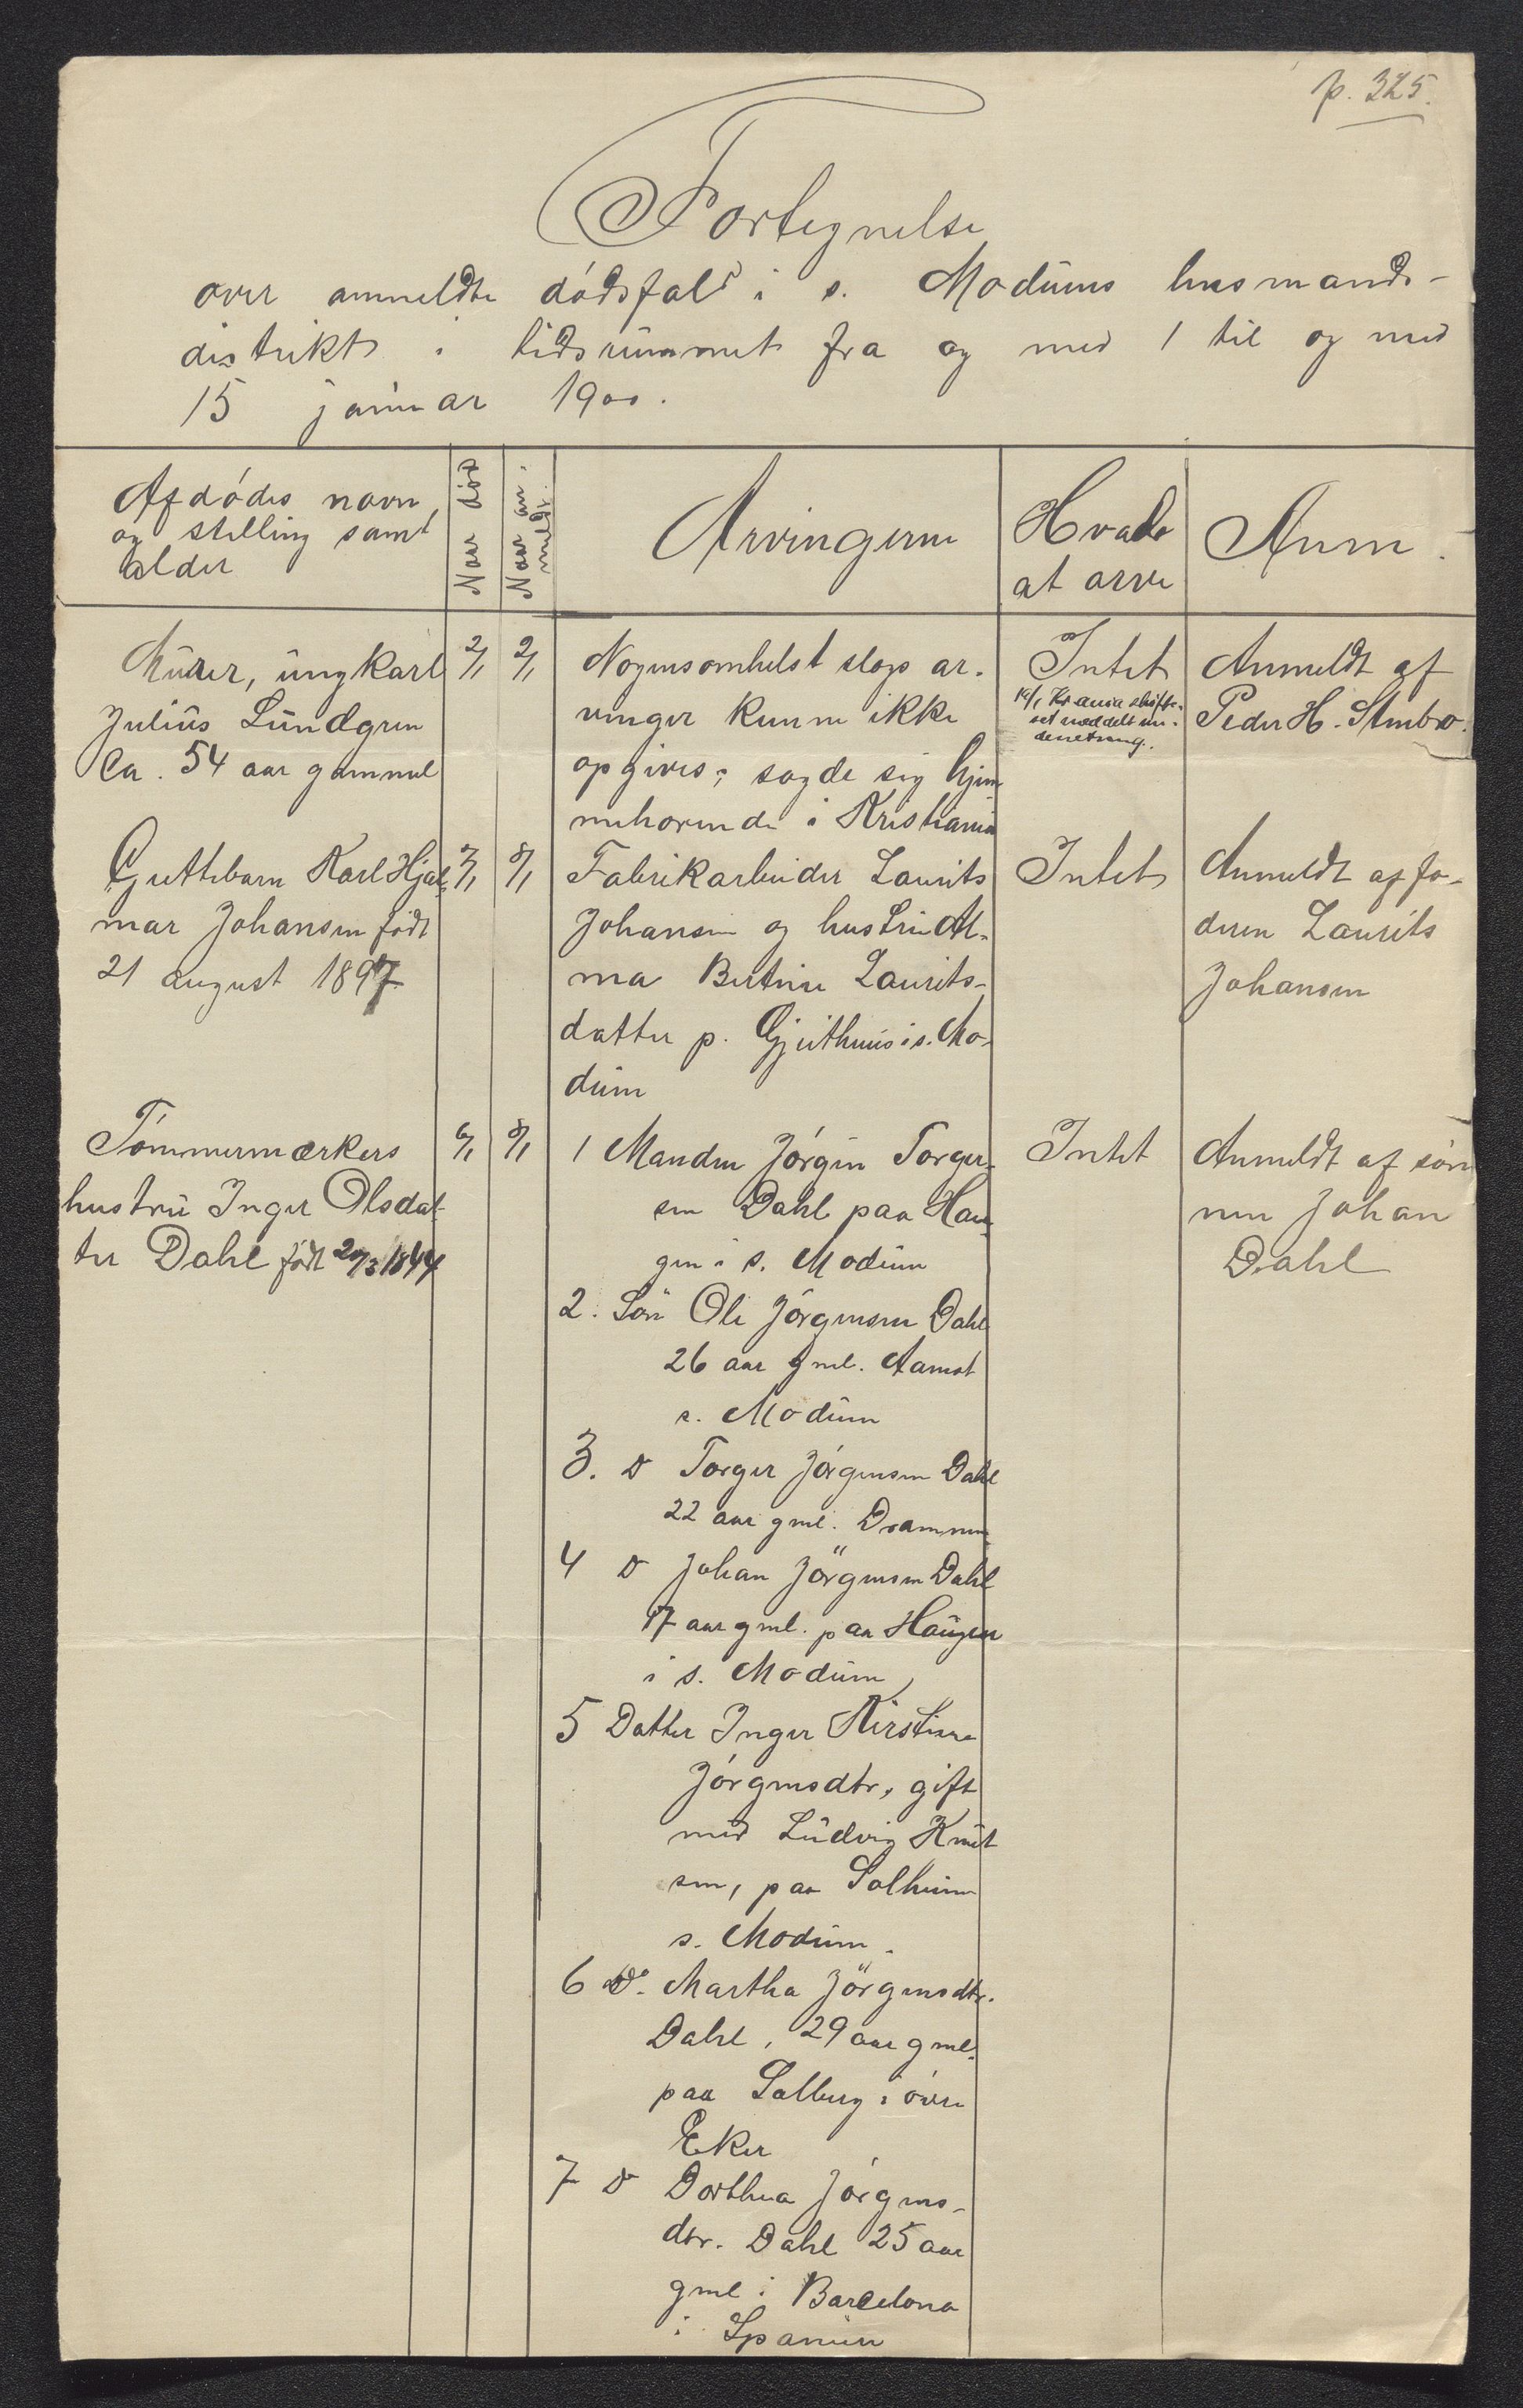 p. 325.
Fortegnelse
over anmeldte dödsfald i s. Modums lensmands-
distrikt i tidsrummet fra og med 1 til og med
15 januar 1900.
Afdödes navn,
og stilling samt
alder
Naar död
Naar an-
meldt.
Arvingerne
Hvad
at arve
Anm.
Murer, ungkarl
Julius Lundgren
Ca. 54 aar gammel
2/1
2/1
Nogensomhelst slags ar-
vinger kunne ikke
opgives; sagde sig hjem
mehörende i Kristiania
Intet
Kr.ania skifte-
ret meddelt un-
derretning.
Anmeldt af
Peder H. Stenbro.
Guttebarn Karl Hjal-
mar Johansen född
21 august 1897
3/1
8/1
Fabrikarbeider Laurits
Johansen og hustru Al-
ma Bertine Laurits-
datter p. Gjeithus i s. Mo-
dum
Intet
Anmeldt af fa-
deren Laurits
Johansen
Tömmermærkers
hustru Inger Olsdat-
ter Dahl född 20/3 1844
6/1
8/1
1 Manden Jörgen Torger-
sen Dahl paa Hau-
gen i s. Modum
2. Sön Ole Jörgensen Dahl
26 aar gml. Aamot
s. Modum
3. Do Torger Jörgensen Dahl
22 aar gml. Drammen
4 Do Johan Jörgensen Dahl
17 aar gml. paa Haugen
i s. Modum
5 Datter Inger Kirstine
Jörgensdtr, gift
med Ludvig Knut
sen, paa Solheim
s. Modum.
6 Do. Martha Jörgensdtr.
Dahl, 29 aar gml.
paa Solberg i övre
Eker
7 Do Dorthea Jörgens-
dtr. Dahl 25 aar
gml i Barcelona
i Spanien
Intet
Anmeldt af sön
nen Johan
Dahl